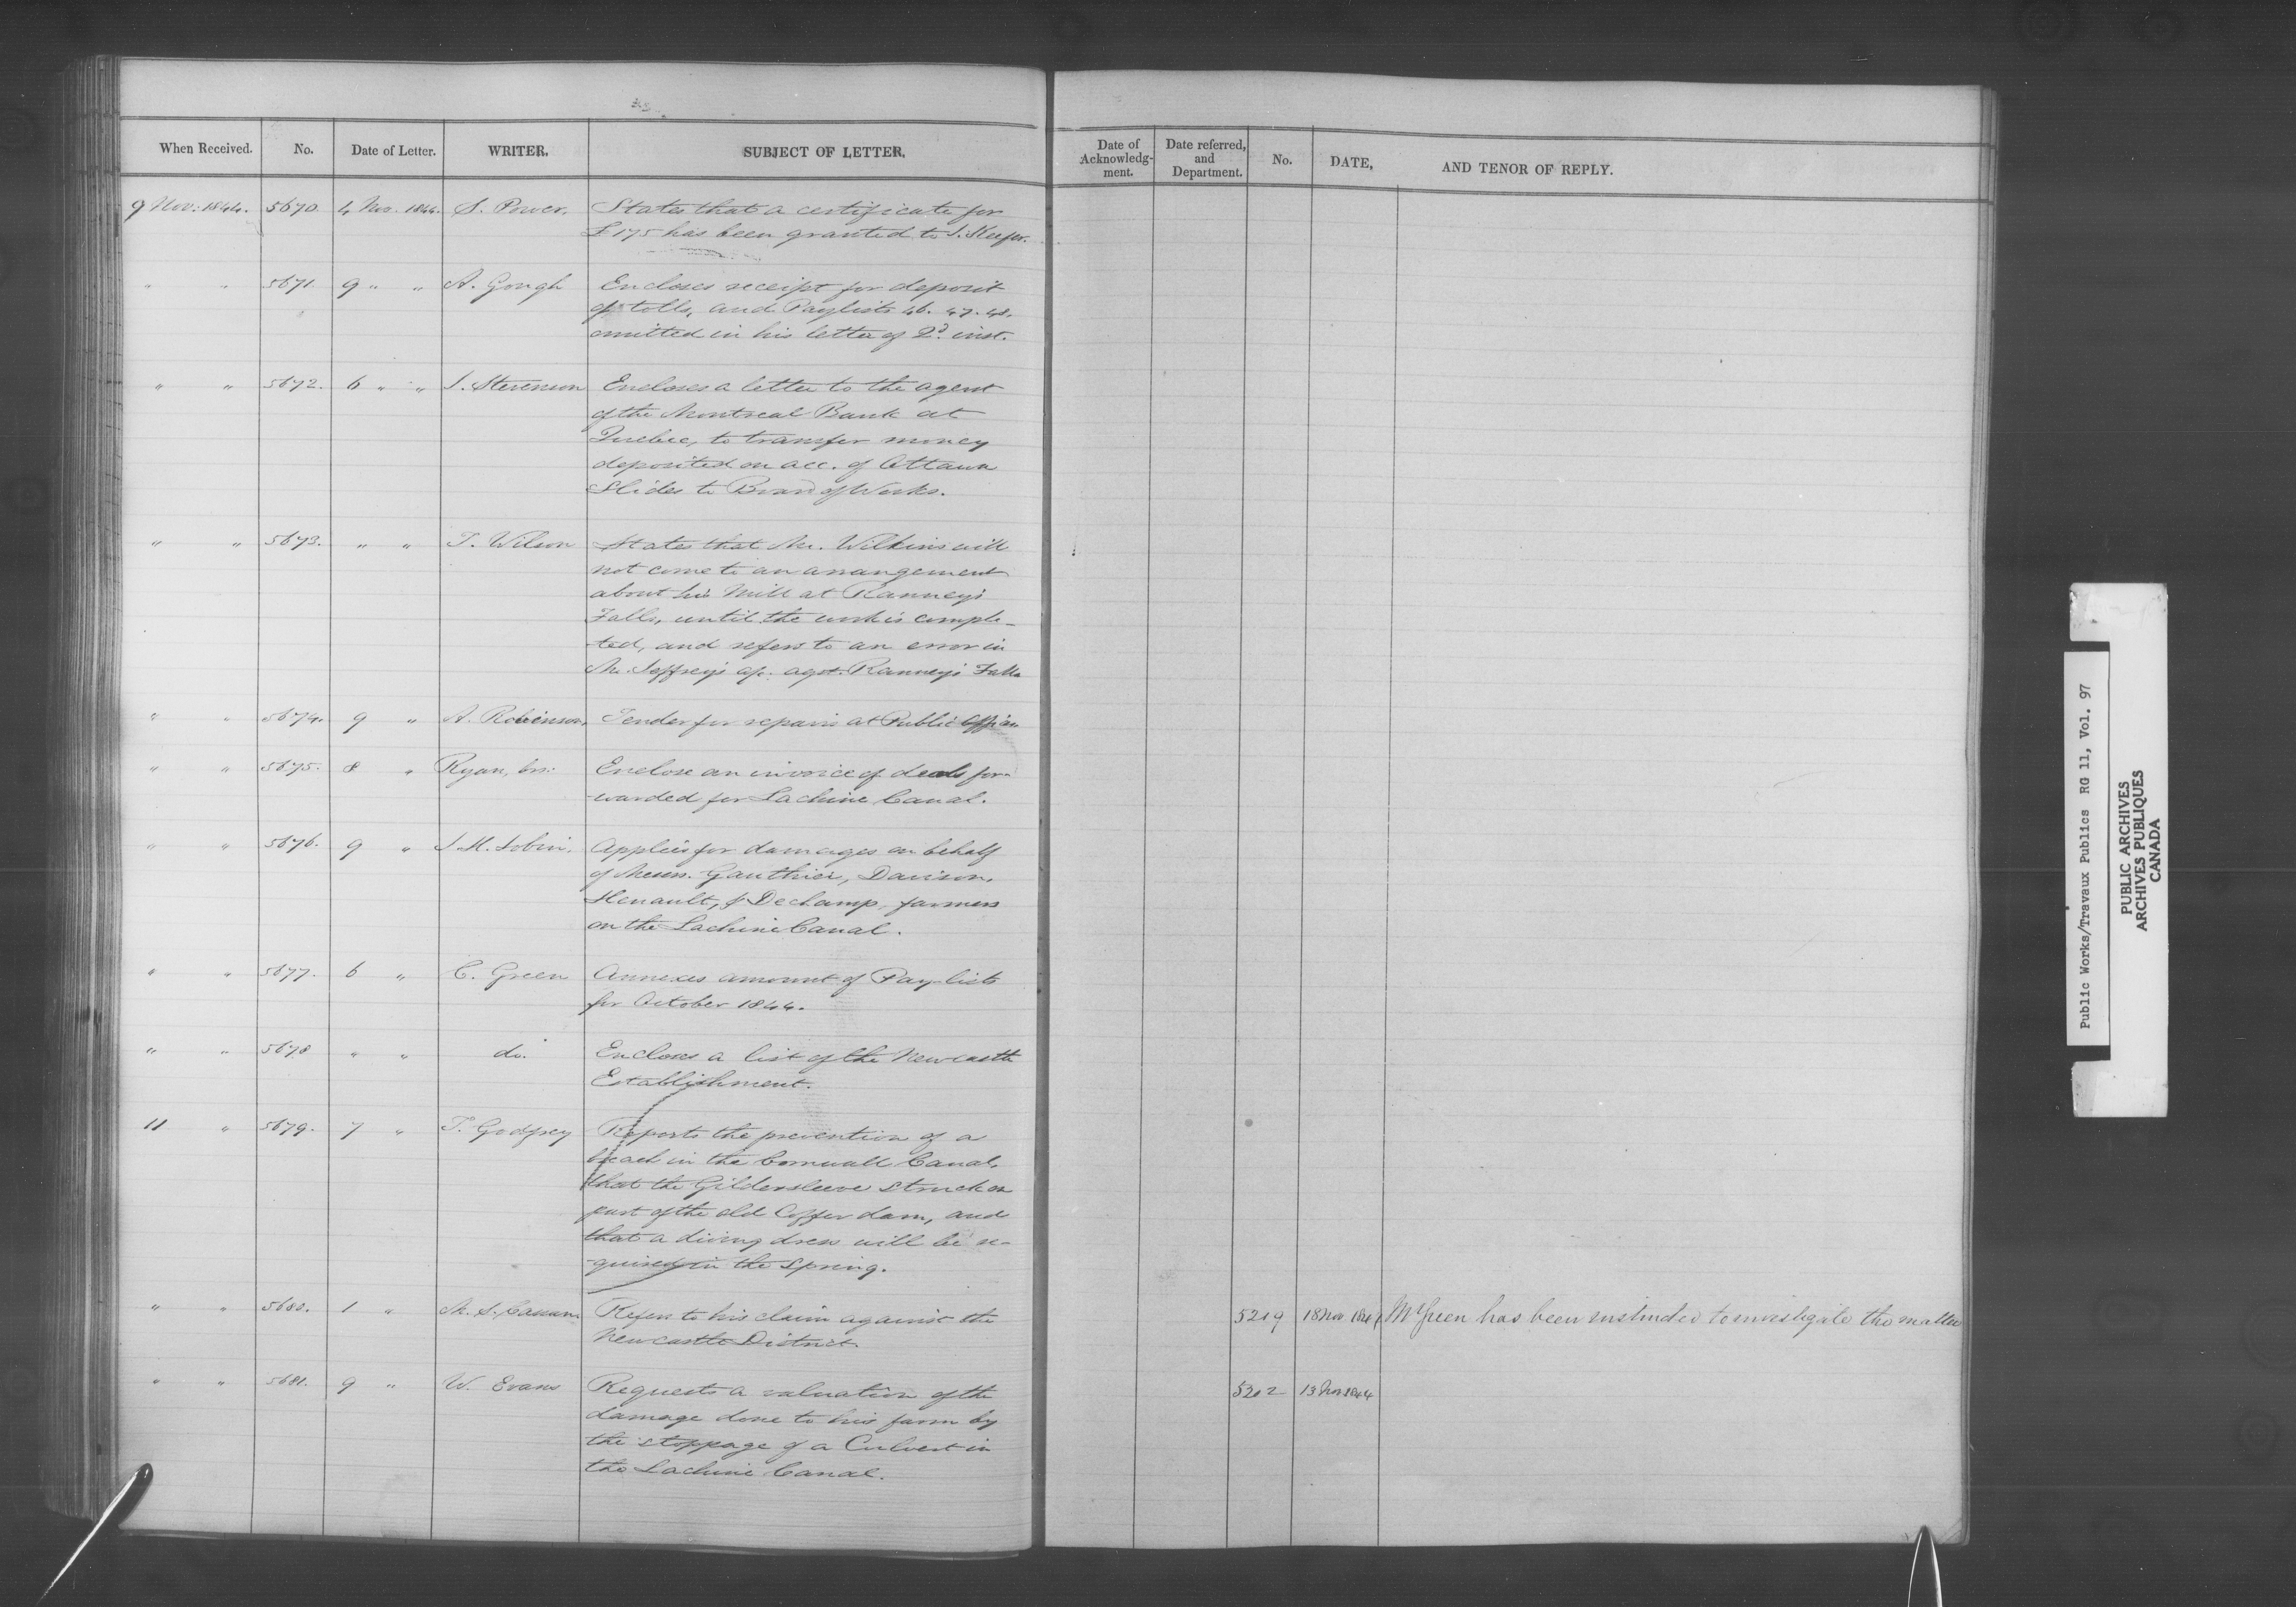 When Received. No. Date of Letter. WRITER. SUBJECT OF LETTER.
9 Nov: 1844. 5670 4 Nov. 1844. S. Power. States that a certificate for
£175 has been granted to S. Keefer.
" " 5671 9 " " A. Gough Encloses receipt for deposit
of tolls, and Paylists 46. 47. 48.
omitted in his letter of 2d. inst.
" " 5672. 6 " " J. Stevenson Encloses a letter to the agent
of the Montreal Bank at
Quebec, to transfer money
deposited on acc. of Ottawa
Slides to Board of Works.
" " 5673. " " T. Wilson States that Mr. Wilkins will
not come to an arrangement
about his Mill at Ranney's
Falls, until the work is comple-
ted, and refers to an error in
Mr. Jeffrey's a/c. agst. Ranney's Falls
" " 5674. 9 " A. Robinson. Tender for repairs at Public Offices
" " 5675. 8 " Ryan, brs: Enclose an invoice of deals for-
-warded for Lachine Canal.
" " 5676. 9 " Applies for damages on behalf
of Messrs. Gauthier, Davison,
Henault, & Dechamp, farmers
on the Lachine Canal.
" " 5677. 6 " C. Green Annexes amount of Pay-lists
for October 1844.
" " 5678 " " do. Encloses a list of the Newcastle
Establishment.
11 " 5679. 7 " T. Godfrey Reports the prevention of a
breach in the Cornwall Canal,
that the Gildersleeve struck on
part of the old Coffer dam, and
that a diving dress will be re-
-quired in the Spring.
" " 5680. 1 " M. S. Cassan Refers to his claim against the
Newcastle District.
" " 5681. 9 " W. Evans Requests a valuation of the
damage done to his farm by
the stoppage of a Culvert in
the Lachine Canal.
Date of Acknowledg-ment. Date referred, and Department. No. DATE, AND TENOR OF REPLY.
5219 18 Nov 1844 Mr Green has been instructed to investigate the matter
5202 13 Nov 1844
Public Works/Travaux Publics RG 11, Vol. 97
PUBLIC ARCHIVES
ARCHIVES PUBLIQUES
CANADA